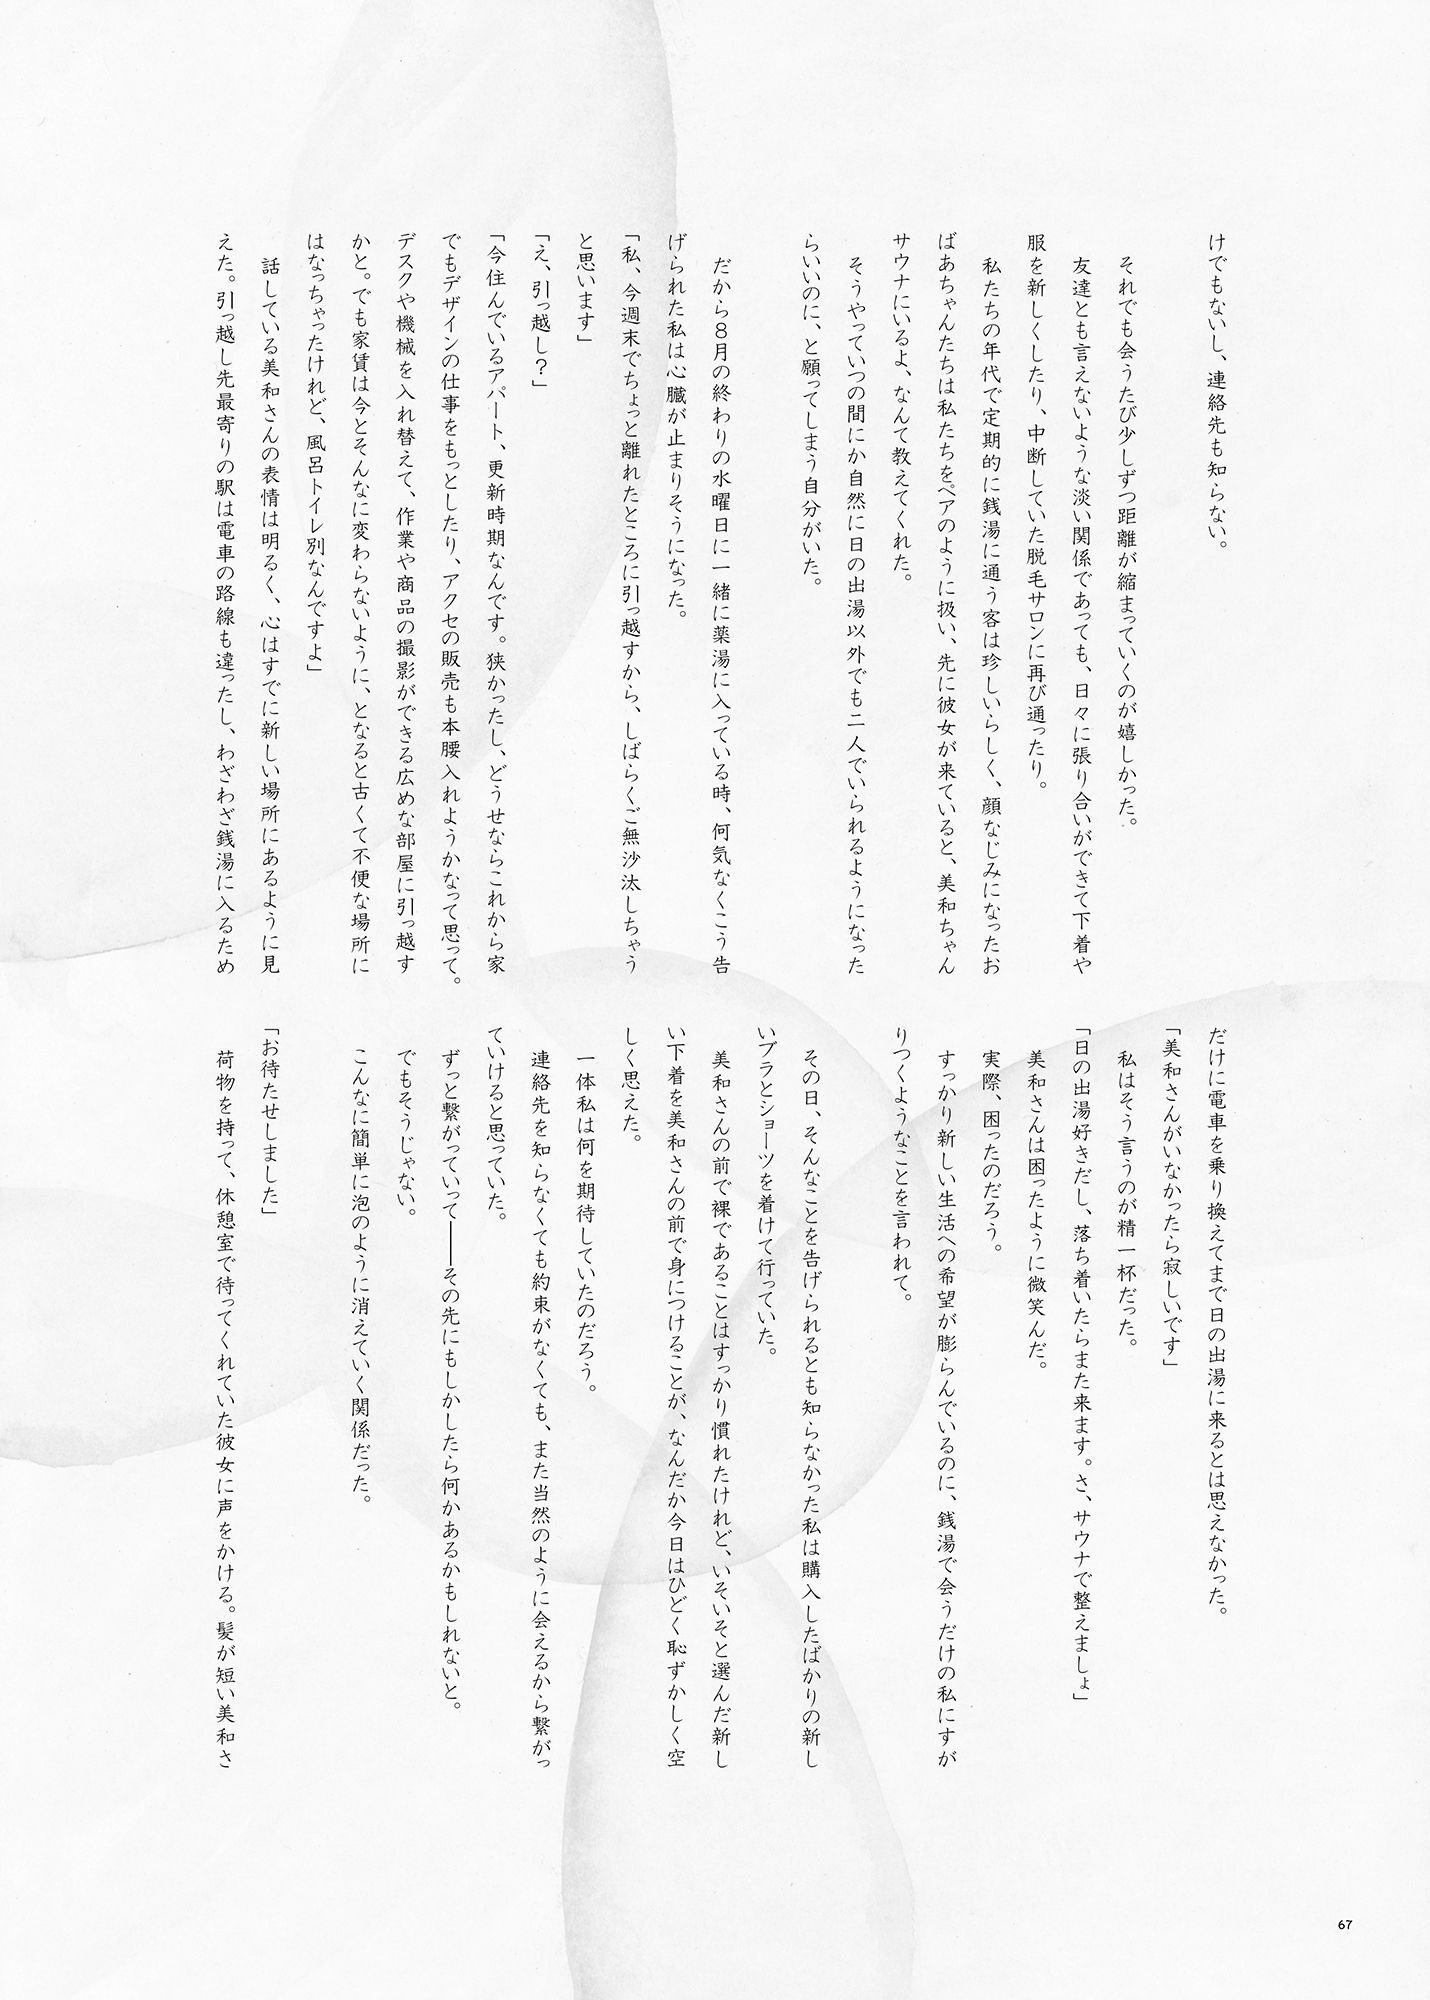 けでもないし、連絡先も知らない。
それでも会うたび少しずつ距離が縮まっていくのが嬉しかった。
友達とも言えないような淡い関係であっても、日々に張り合いができて下着や
服を新しくしたり、中断していた脱毛サロンに再び通ったり。
私たちの年代で定期的に銭湯に通う客は珍しいらしく、顔なじみになったお
ばあちゃんたちは私たちをペアのように扱い、先に彼女が来ていると、美和ちゃん
サウナにいるよ、なんて教えてくれた。
そうやっていつの間にか自然に日の出湯以外でも二人でいられるようになった
らいいのに、と願ってしまう自分がいた。
だから8月の終わりの水曜日に一緒に薬湯に入っている時、何気なくこう告
げられた私は心臓が止まりそうになった。
「私、今週末でちょっと離れたところに引っ越すから、しばらくご無沙汰しちゃう
と思います」
「え、引っ越し？」
「今住んでいるアパート、更新時期なんです。狭かったし、どうせならこれから家
でもデザインの仕事をもっとしたり、アクセの販売も本腰入れようかなって思って。
デスクや機械を入れ替えて、作業や商品の撮影ができる広めな部屋に引っ越す
かと。でも家賃は今とそんなに変わらないように、となると古くて不便な場所に
はなっちゃったけれど、風呂トイレ別なんですよ」
話している美和さんの表情は明るく、心はすでに新しい場所にあるように見
えた。引っ越し先最寄りの駅は電車の路線も違ったし、わざわざ銭湯に入るため
だけに電車を乗り換えてまで日の出湯に来るとは思えなかった。
「美和さんがいなかったら寂しいです」
私はそう言うのが精一杯だった。
「日の出湯好きだし、落ち着いたらまた来ます。さ、サウナで整えましょ」
美和さんは困ったように微笑んだ。
実際、困ったのだろう。
すっかり新しい生活への希望が膨らんでいるのに、銭湯で会うだけの私にすが
りつくようなことを言われて。
その日、そんなことを告げられるとも知らなかった私は購入したばかりの新し
いブラとショーツを着けて行っていた。
美和さんの前で裸であることはすっかり慣れたけれど、いそいそと選んだ新し
い下着を美和さんの前で身につけることが、なんだか今日はひどく恥ずかしく空
しく思えた。
一体私は何を期待していたのだろう。
連絡先を知らなくても約束がなくても、また当然のように会えるから繋がっ
ていけると思っていた。
ずっと繋がっていって――その先にもしかしたら何かあるかもしれないと。
でもそうじゃない。
こんなに簡単に泡のように消えていく関係だった。
「お待たせしました」
荷物を持って、休憩室で待ってくれていた彼女に声をかける。髪が短い美和さ
67